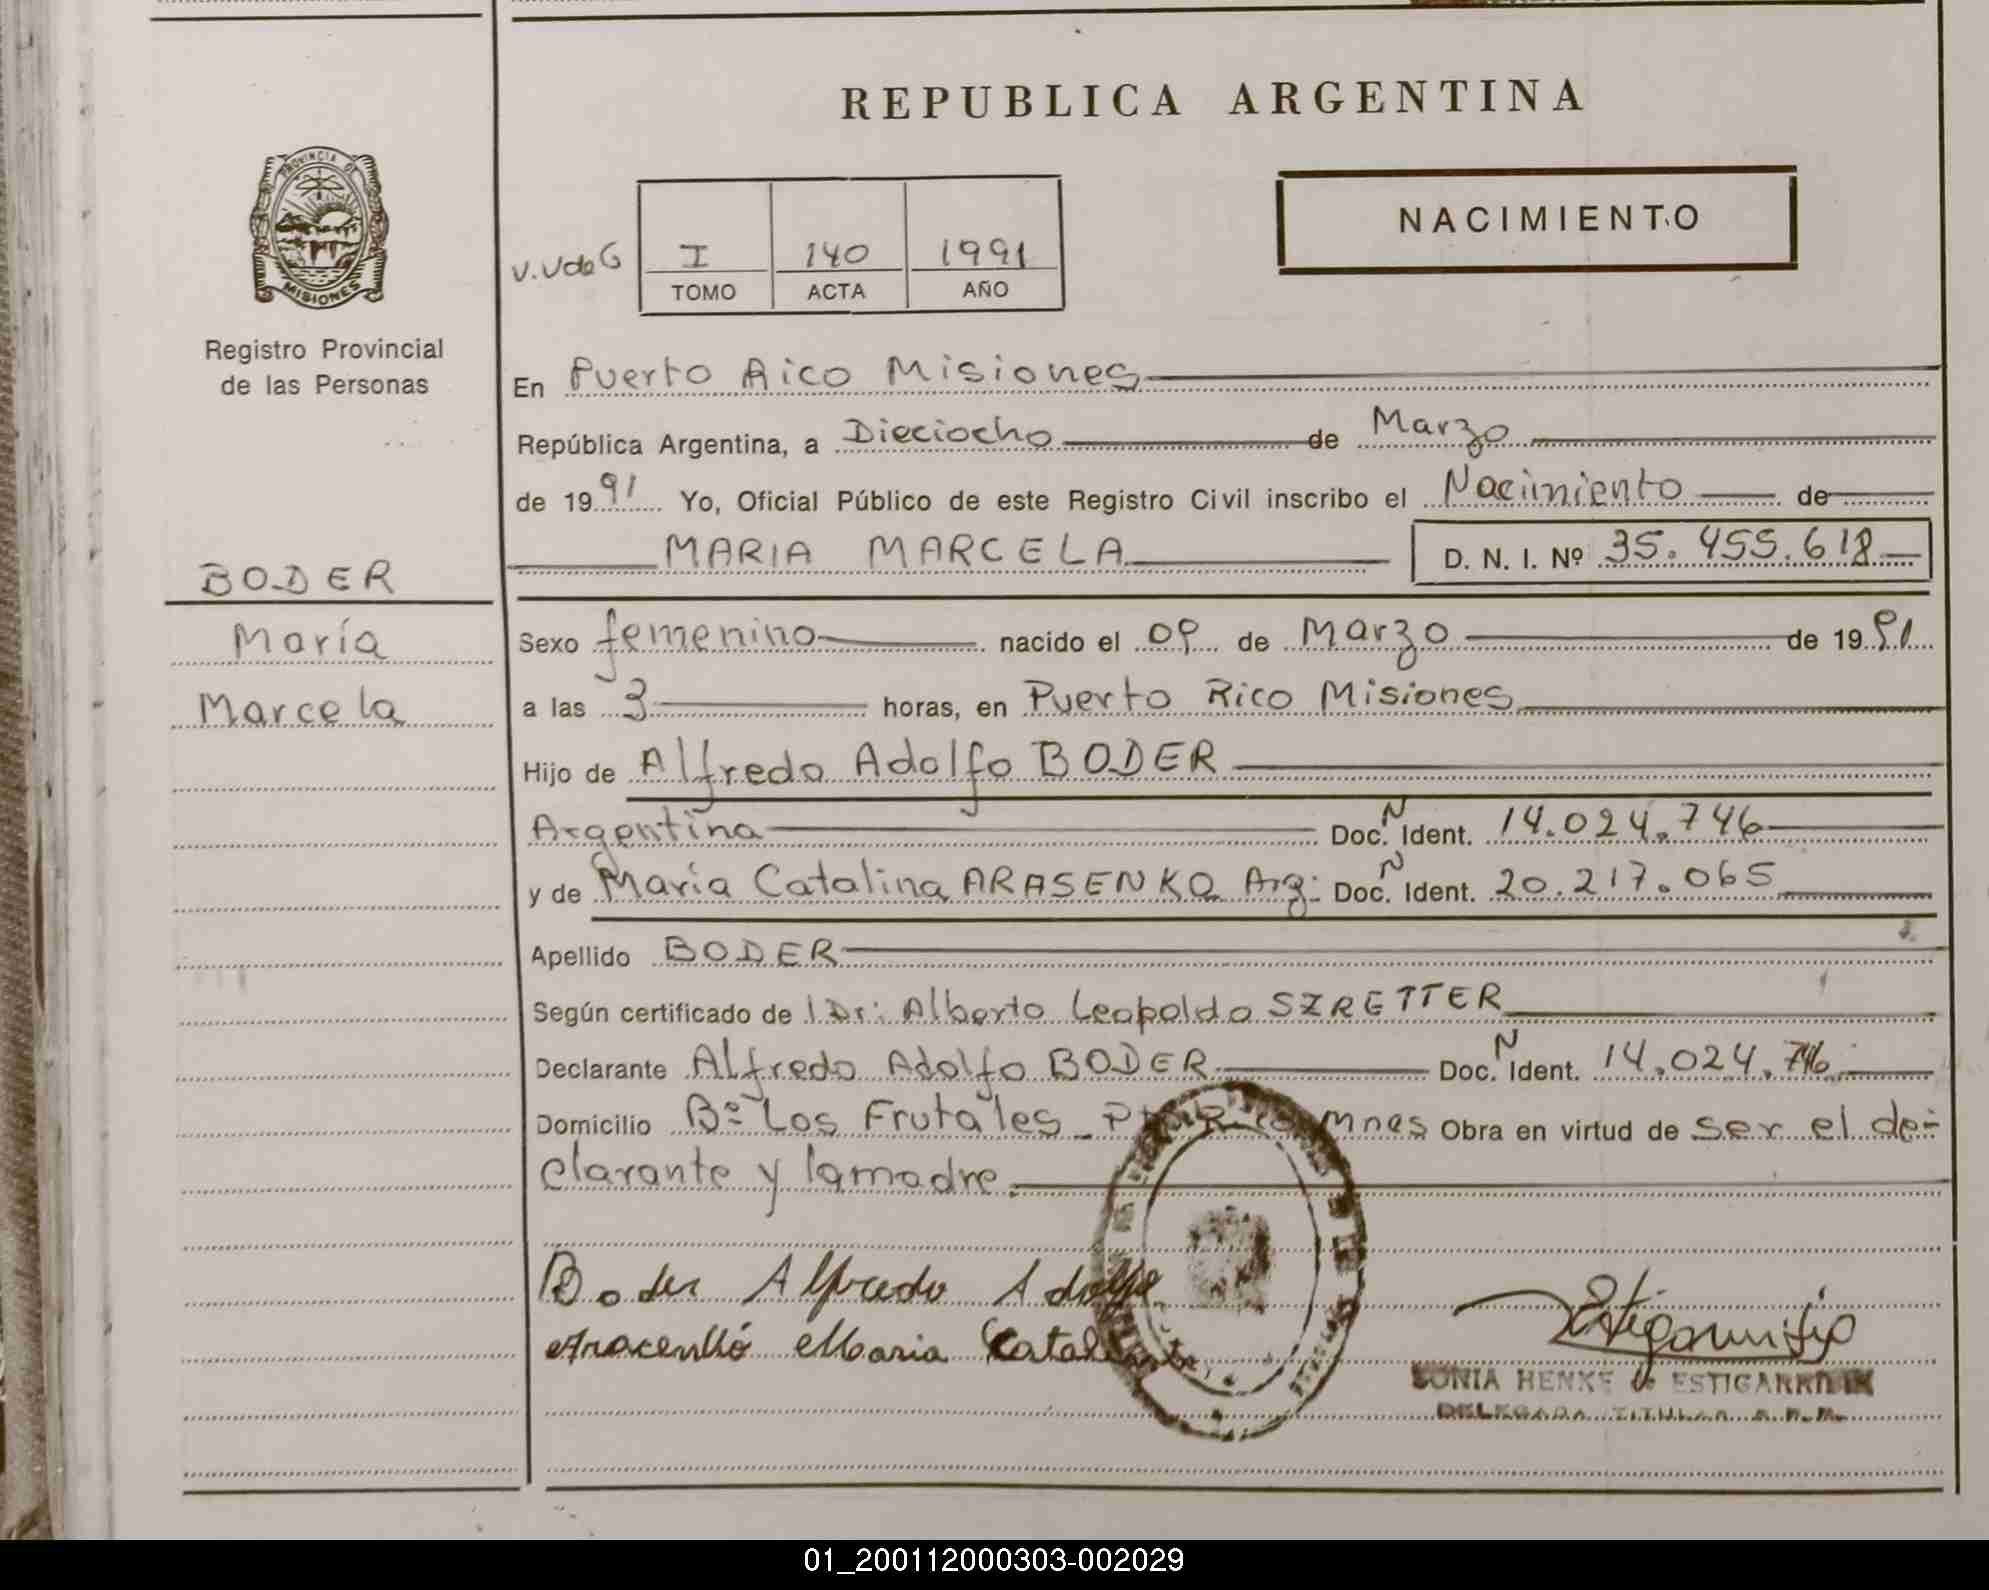 REPUBLICA ARGENTINA
PROVINCIA DE
MISIONES
NACIMIENTO
V.V de G
I 140 1991
TOMO ACTA AÑO
Registro Provincial
de las Personas
En Puerto Rico Misiones
República Argentina, a Dieciocho de Marzo
de 1991 Yo, Oficial Público de este Registro Civil inscribo el Nacimiento de
MARIA MARCELA D. N. I. Nº 35.455.618
BODER
María
Marcela
Sexo femenino nacido el 09 de Marzo de 1991
a las 3 horas, en Puerto Rico Misiones
Hijo de Alfredo Adolfo BODER
Argentina Doc. N Ident. 14.024.746
y de María Catalina ARASENKO Arg: Doc. N Ident. 20.217.065
Apellido BODER
Según certificado de l Dr: Alberto Leopoldo SZRETTER
Declarante Alfredo Adolfo BODER Doc. N Ident. 14.024.746
Domicilio Bº Los Frutales - Pto Rico Mnes Obra en virtud de ser el de-
clarante y la madre.
Boder Alfredo Adolfo
Maria Catalina
SONIA HENKE de ESTIGARRIBIA
DELEGADA TITULAR R.P.P.
01_200112000303-002029